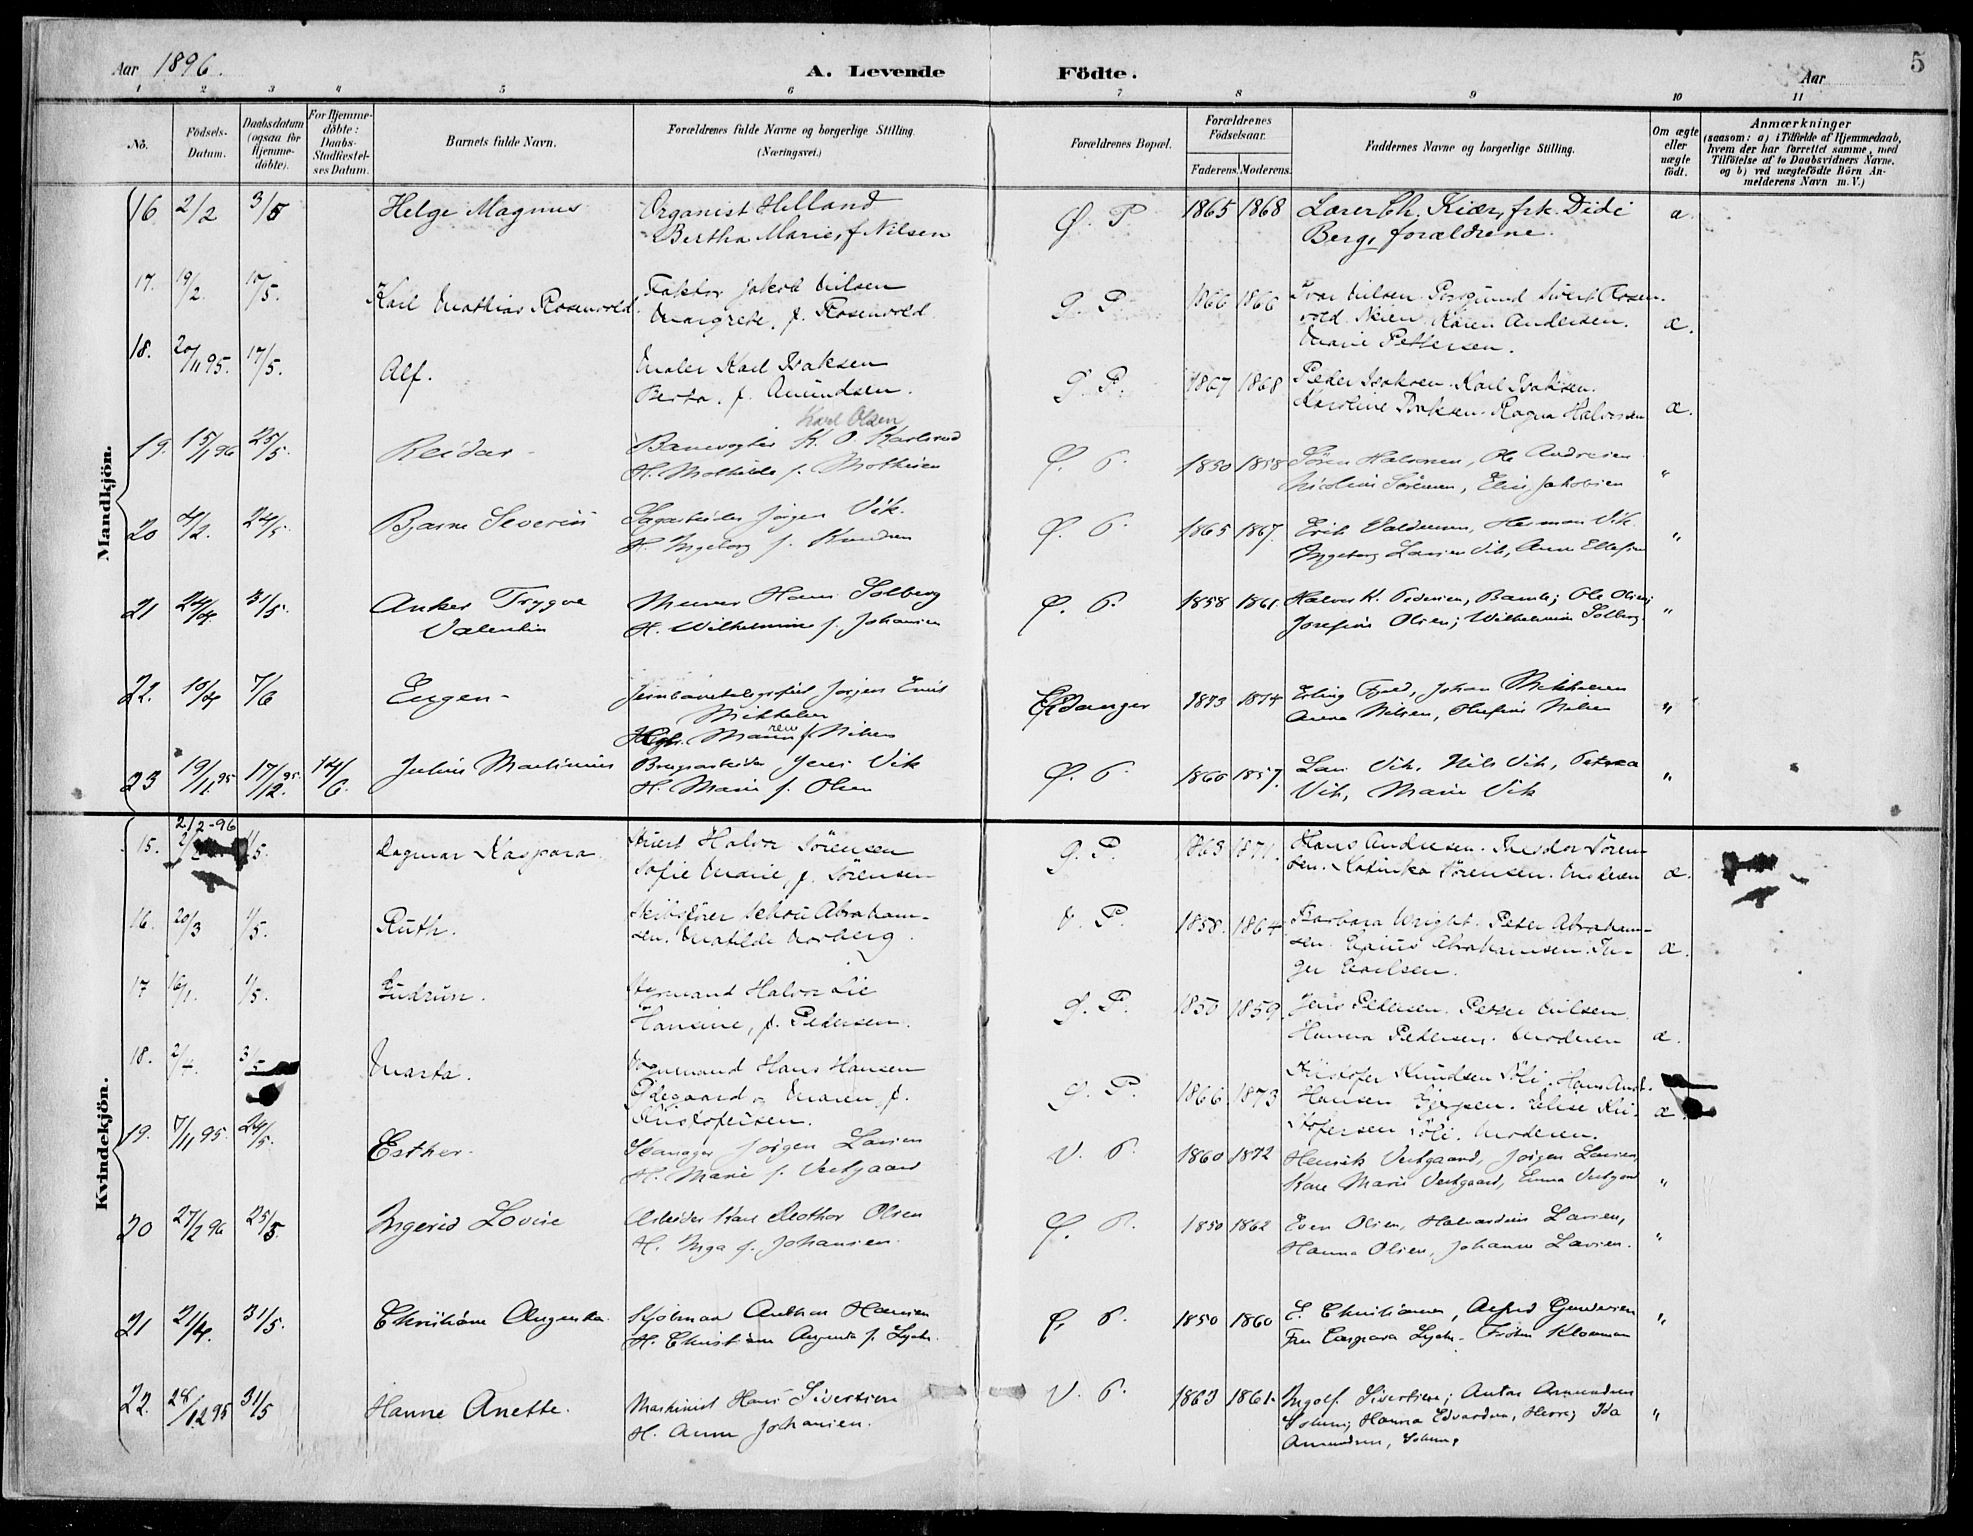 Aar 1896.
A. Levende Fødte.
Aar
5
1 2 3 4 5 6 7 8 9 10 11
No.
Fødsels-Datum.
Daabsdatum (ogsaa for Hjemme-døbte).
For Hjemme-døbte: Daabs-Stadfæstel-ses Datum.
Barnets fulde Navn.
Forældrenes fulde Navne og borgerlige Stilling.
(Næringsvei.)
Forældrenes Bopæl.
Forældrenes Fødselsaar.
Faderens. Moderens.
Faddernes Navne og borgerlige Stilling.
Om ægte eller uægte født.
Anmærkninger
(saasom: a) i Tilfælde af Hjemmedaab, hvem der har forrettet samme, med Tilføielse af to Daabsvidners Navne, og b) ved uægtefødte Børn An-melderens Navn m. V.)
Mandkjön.
16 2/2 3/5 Helge Magnus Organist Helland Ø. P. 1865 1868 Lærer Ch. Kiær, frk. Didi æ.
Bertha Marie, f. Nilsen Berg, forældrene.
17. 19/2. 10/5. Karl Mathias Rosenvold. Faktor Jakob Nilsen G. P. 1866 1866 Ivar Nilsen Porsgrund Sivert Rosen-
Margrete, f. Rosenvold vold. Skien. Karen Andersen. æ.
Marie Pettersen.
18. 20/11 95. 17/5. Alf. Maler Karl Isaksen G. P. 1867 1868 Peder Isaksen. Karl Isaksen.
Berta, f. Amundsen. Karoline Isaksen. Ragna Halvorsen æ.
Karl Olsen
19. 15/1 96 25/5. Reidar Banevogter K. O. Karlsrud Ø. P. 1850 1858 Søren Halvorsen, Ole Andresen "
H. Mathilde f. Mathisen Nicoline Sørensen, Elise Jakobsen
20 4/2. 24/5. Bjarne Severin Sagarbeider Jørgen Vik. Ø. P. 1865 1867. Erik Valdsemen, Herman Vik "
H. Ingeborg f. Knudsen Ingeborg Larsen Vik, Anna Ellefsen
21 24/4 31/5. Anker Trygve Murer Hans Solberg Ø. P. 1858 1861. Halvor K. Pedersen, Bamle; Ole Olsen; "
Valentin H. Wilhelmine f. Johansen Josefine Olsen; Wilhelmine Solberg.
22. 10/4 7/6 Eugen Jernbanetelegrafist Jørgen Emil Eidanger 1873 1874 Erling Fjeld, Johan Mikkelsen "
Mikkelsen Anna Nilsen, Olufine Nilsen
f. Nilsen
23 19/11 95 17/12 95. 14/6. Julius Martinius Brugsarbeider Jens Vik Ø. P. 1860 1857. Lars Vik, Nils Vik, Petrea "
H. Marie f. Olsen Vik, Marie Vik
Kvindekjön.
2/2-96
15. /5. Dagmar Kaspara Stuert Halvor Sørensen G. P. 1863 1871. Hans Andresen. Theodor Søren-
Sofie Marie, f. Sørensen sen. Katinka Sørensen. Moderen æ.
16. 20/3 1/5. Ruth. Skibsfører Schou Abraham- V. P. 1858. 1864 Barbara Wright. Peter Abraham-
sen. Matilde Norberg. sen. Abrahamsen. In- æ.
ger Carlsen.
17 16/1. 1/5. Gudrun. Styrmand Halvor Lie G. P. 1850 1859. Jens Pedersen. Petter Nilsen
Hansine, f. Pedersen. Hanna Pedersen. Moderen æ.
18. 2/4. 3/5 Marta. Vognmand Hans Hansen G. P. 1866 1873 Kristofer Knudsen Soli. Hans
Ødegaard og Maren, f. Hansen Gjerpen. Elise Kri- æ.
Kristofersen. stofersen Soli. Moderen.
19. 7/11 95. 24/5. Esther. Jørgen Larsen V. P. 1860 1872 Henrik Vestgaard, Jørgen Larsen,
H. Marie f. Vestgaard Kare Marie Vestgaard, Emma Vestgaard "
20 27/2 96 25/5. Ingerid Lovise Arbeider Karl Olsen Ø. P. 1850 1862 Even Olsen, Halvardine Larsen, "
H. Inga f. Johansen. Hanna Olsen, Johanne Larsen.
21 21/4. 31/5. Christiane Augusta Anthon Hansen Ø. P. 1850 1860 E. Christiansen, Alfred Gundersen "
H. Christiane Augusta f. Lycke. Fru Caspara Lycke.
22. 28/12 95 31/5 Hanne Anette. Maskinist Hans Sivertsen V. P. 1863 1861. Ingolf Sivertsen; Anton Amundsen
H. Anne Johansen. Solum; Hanna Edvardsen, Herre; Ida "
Amundsen, Solum;